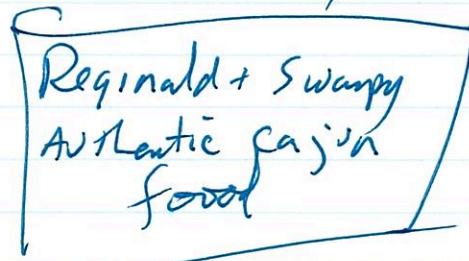 Reginald + Swampy
Authentic Cajun
food